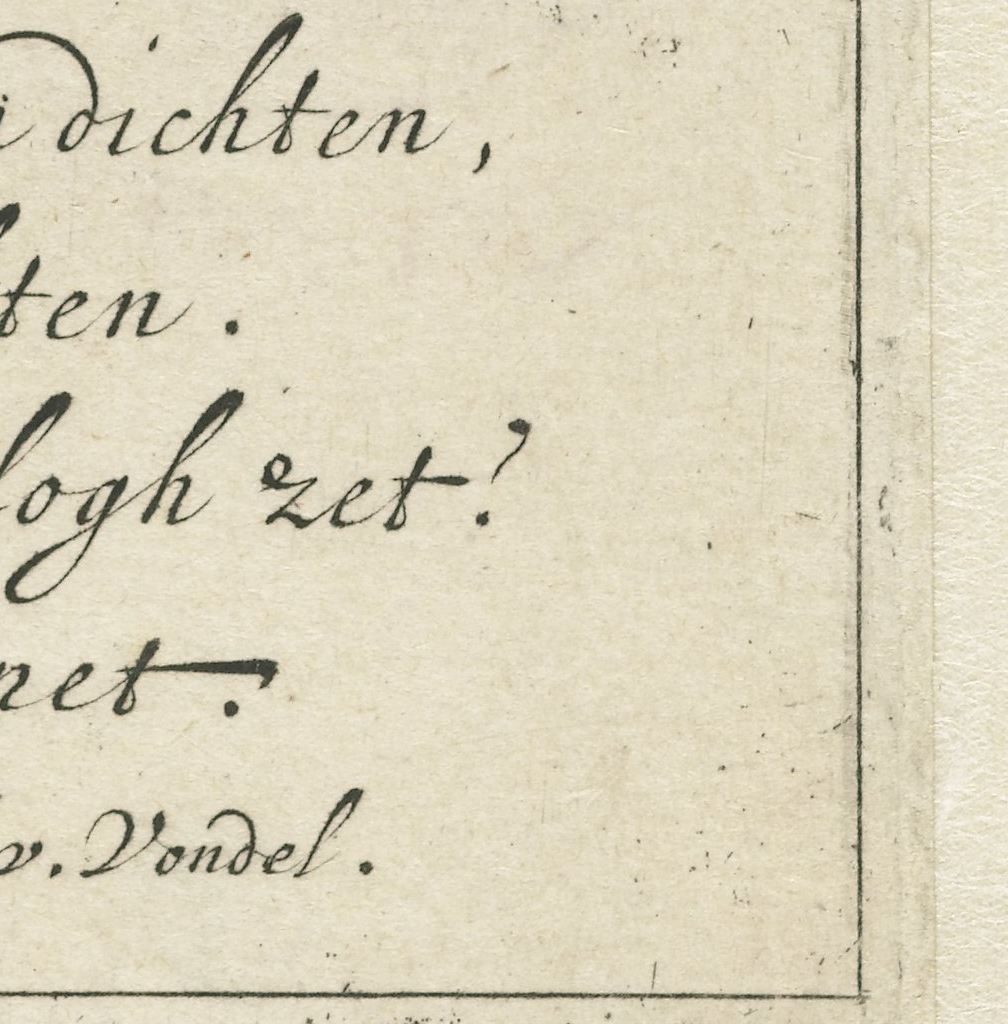 dichten,
ten.
logh zet?
net.
v. Vondel.